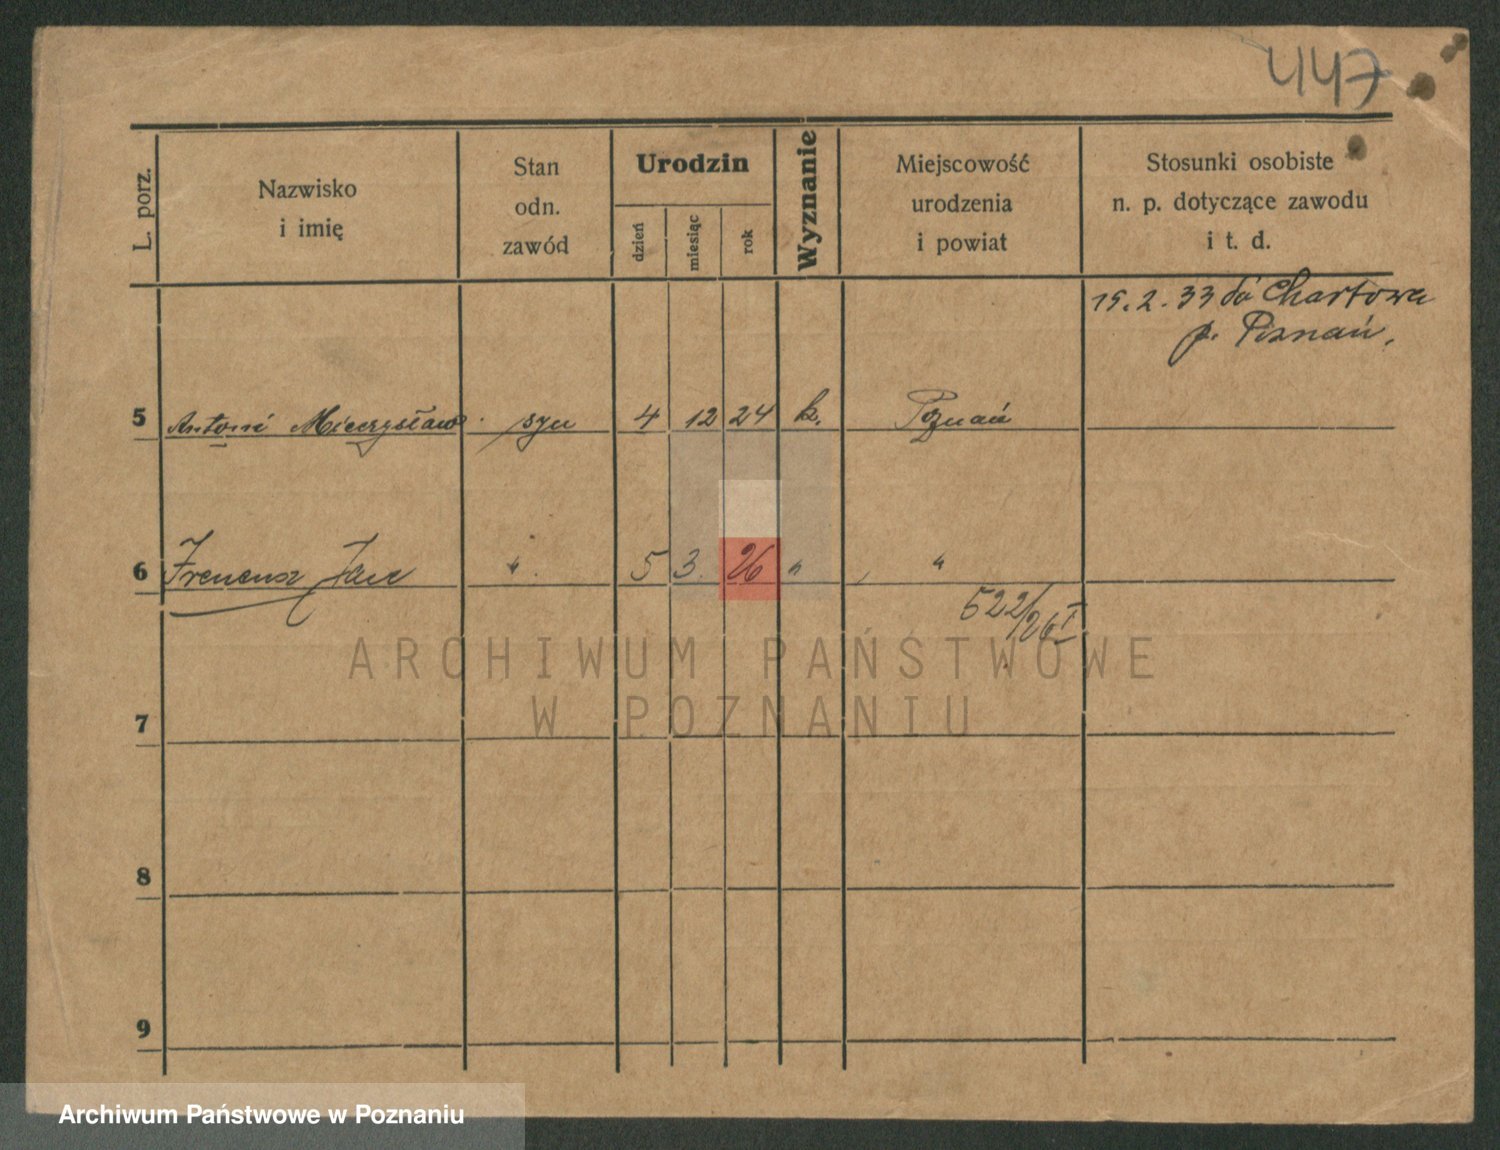 447
L. porz.
Nazwisko
i imię
Stan
odn.
zawód
Urodzin
dzień
miesiąc
rok
Wyznanie
Miejscowość
urodzenia
i powiat
Stosunki osobiste
n. p. dotyczące zawodu
i t. d.
15.2.33 do Chartowa
p. Poznań.
5 Antoni Mieczysław syn 4 12 24 k. Poznań
6 Ireneusz Jan " 5 3. 26 " "
522/26 I
ARCHIWUM PAŃSTWOWE
W POZNANIU
7
8
9
Archiwum Państwowe w Poznaniu